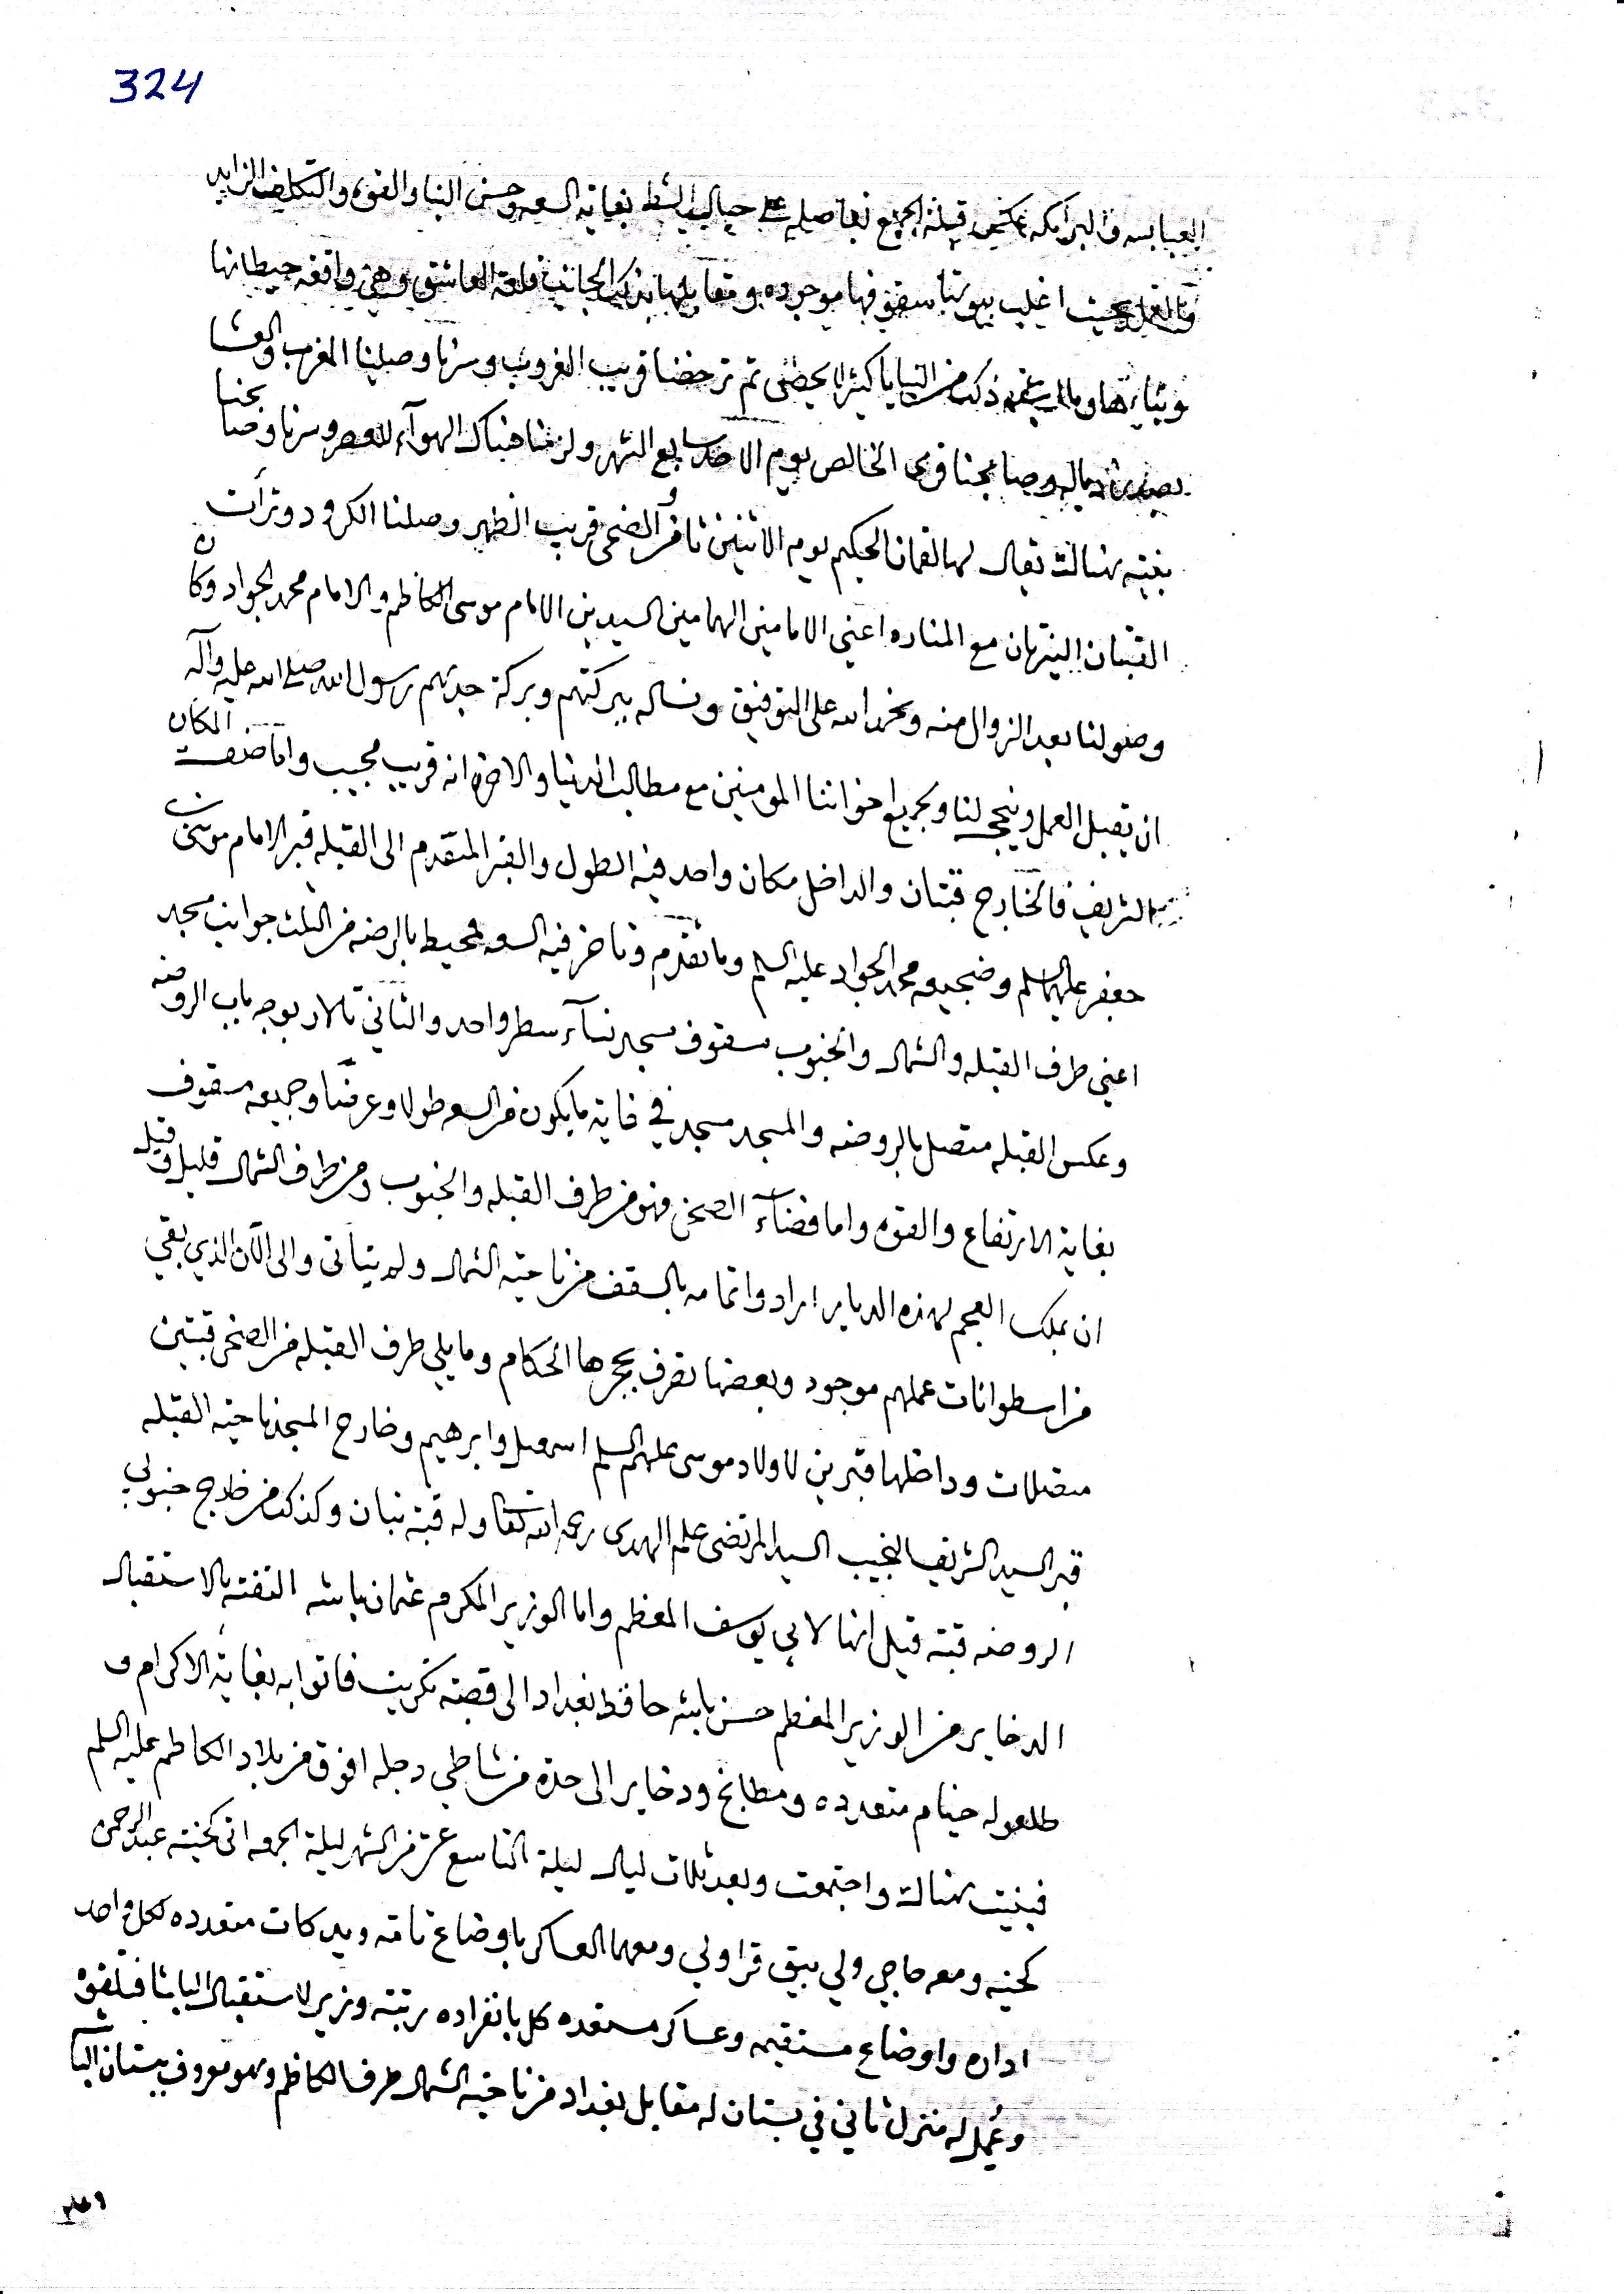 324
العباسه والبرامكه بعكس قبلة الجميع تفاصيله على حيال الشط بغاية السعه وحسن البنا والقوه والتكليف الزايد
والعمل بحيث اغلب بيوتها سقوفها موجوده ومقابلها بذيك الجانب قلعة العاشق وهي واقفه حيطانها
وبناءها وما ذلك من البنايا كثير لا يحصى ثم ترحضنا قريب الغروب وسرنا وصلينا المغرب والعشا
وصابحنا قرى الخالص يوم الاحد سابع الشهر ولزمنا هناك الهوآء للعصر وسرنا وصابحنا
بغيته هناك يقال لها لقمان الحكيم يوم الاثنين ثامن و الضحى قريب الظهر وصلنا الكرود وترأت
القبتان النيرتان مع المناره اعني الامامين الهمامين السيدين الامام موسى الكاظم والامام محمد الجواد وكان
وصولنا بعد الزوال منه ونحمد الله على التوفيق ونساله ببركتهم وبركة جدهم رسول الله صلى الله عليه وآله
ان يقبل العمل وينجح لنا وبجميع اخواننا المومنين مع مطالب الدنيا والاخره انه قريب مجيب واما صفت المكان
الشريف فالخارج قبتان والداخل مكان واحد فيه الطول والقبر المتقدم الى القبله قبر الامام موسى بن
جعفر عليهما السلم وضجيعه محمد الجواد عليه السلم وما تقدم وتاخر فيه السعه محيط بالروضه من الثلث جوانب مسجد
اعني طرف القبله والشمال والجنوب سقوف مسجد نسآء سطر واحد والثاني تالار بوجه باب الروضه
وعكس القبله متصل بالروضه والمسجد مسجد في غاية ما يكون من السعه طولا وعرضا وجميعه سقوف
بغاية الارتفاع والقوه واما فضآء الصحن فهو من طرف القبله والجنوب ومن طرف الشمال قليل وقيل
ان بملك العجم لهذه الديار اراد واتمامه بالسقف من ناحية الشمال ولم يتاتى والى الآن الذي بقي
من اسطوانات عملهم موجود وبعضها تصرف بحجرها الحكام وما يلي طرف القبله من الصحن قبتين
متصلات وداخلها قبرين لاولاد موسى عليهم السلم اسمعيل وابرهيم وخارج المسجد ناحية القبله
قبر السيد الشريف النجيب السيد المرتضى علم الهدى رحمه الله تعالى وله قبة تبان وكذلك من خارج جنوبي
الروضه قبة قيل انها لابي يوسف المعظم واما الوزير المكرم عثمان باشه التفته بالاستقبال
الدخاير من الوزير المعظم حسن باشه حافظ بغداد الى قصبة تكريت فاتوا به بغاية الاكرام و
طلعو له خيام متعدده ومطابخ ودخاير الى حدة من شاطي دجله افوق من بلاد الكاظم عليه السلم
فبنيت هناك واجتمعت وبعد ثلاث ليال ليلة التاسع عشر من الشهر ليلة الجمعه اتى كخيته عبد الرحمن
كخيه ومعه حاجي ولي بيق قراولي ومعهما العساكر باوضاع تامه ويدكات متعدده لكل واحد
اداره واوضاع مستقيمه وعساكر مستعده كل بانفراده برتبة وزير لاستقبال الباشا فبلقوه
وعمل له منزل ثاني في بستان له مقابل بغداد من ناحية الشمال طرف الكاظم وهو معروف ببستان الباشا